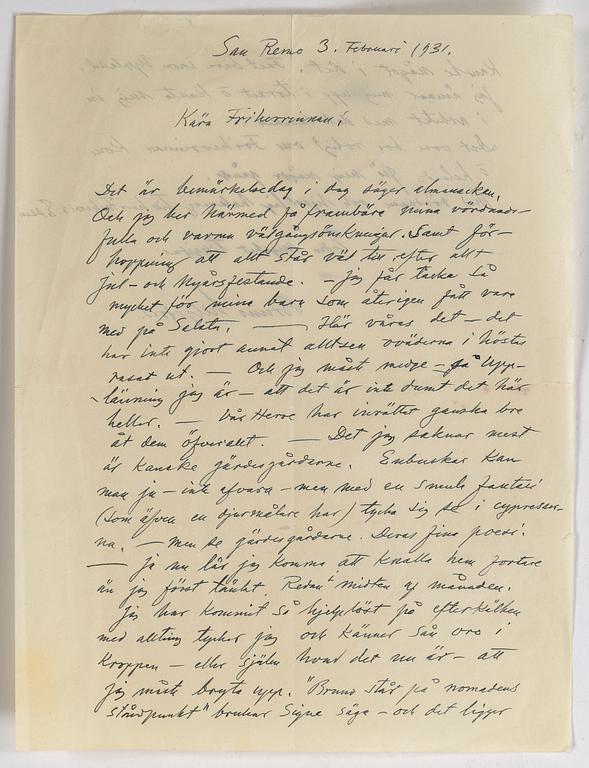 San Remo 3. Februari 1931.
Kära Friherrinnan!
Det är bemärkelsedag i dag säger almanackan.
Och jag ber härmed få frambära mina vördnads-
fulla och varma välgångsönskningar. Samt för-
hoppning att allt står väl till efter allt
jul- och Nyårsfestande. – Jag får tacka så
mycket för mina barn som återigen fått vara
med på Salsta. — Här våras det – det
har inte gjort annat alltsen ovädren i höstas
rasat ut. — Och jag måste medge – få Upp-
länning jag är – att det är inte dumt det här
heller. — Vår Herre har inrättat ganska bra
åt dem öfverallt. — Det jag saknar mest
är kanske gärdesgårdarne. Enbuskar kan
man ju – inte efvara – men med en smula fantasi
(som äfven en djurmålare har) tycka sig se i cypresser-
na. – men se gärdesgårdarne. Deras fina poesi.
— Ja nu lär jag komma att knalla hem fortare
än jag först tänkt. Redan i midten af månaden.
Jag har kommit så hjelplöst på efterkälken
med allting tycker jag och känner sån oro i
kroppen – eller själen hvad det nu är – att
jag måste bryta upp. "Bruno står på nomadens
ståndpunkt" brukar Signe säga – och det ligger